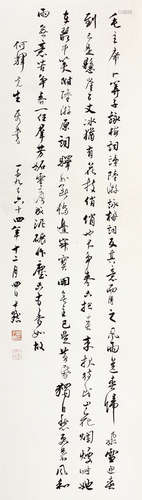 毛主席卜算子詠梅詞讀陸游詠梅詞反其意而用之風雨送春歸飛雪迎春
到已是懸崖百丈冰猶有花枝俏俏也不爭春只把春來報待到山花爛熳時她
在叢中笑附陸游原詞驛外斷橋邊寂寞開無主已是黃昏獨自愁更著風和
雨無意苦爭春一任群芳妒零落成泥碾作塵只有香如故
何 先生
年十二月四日